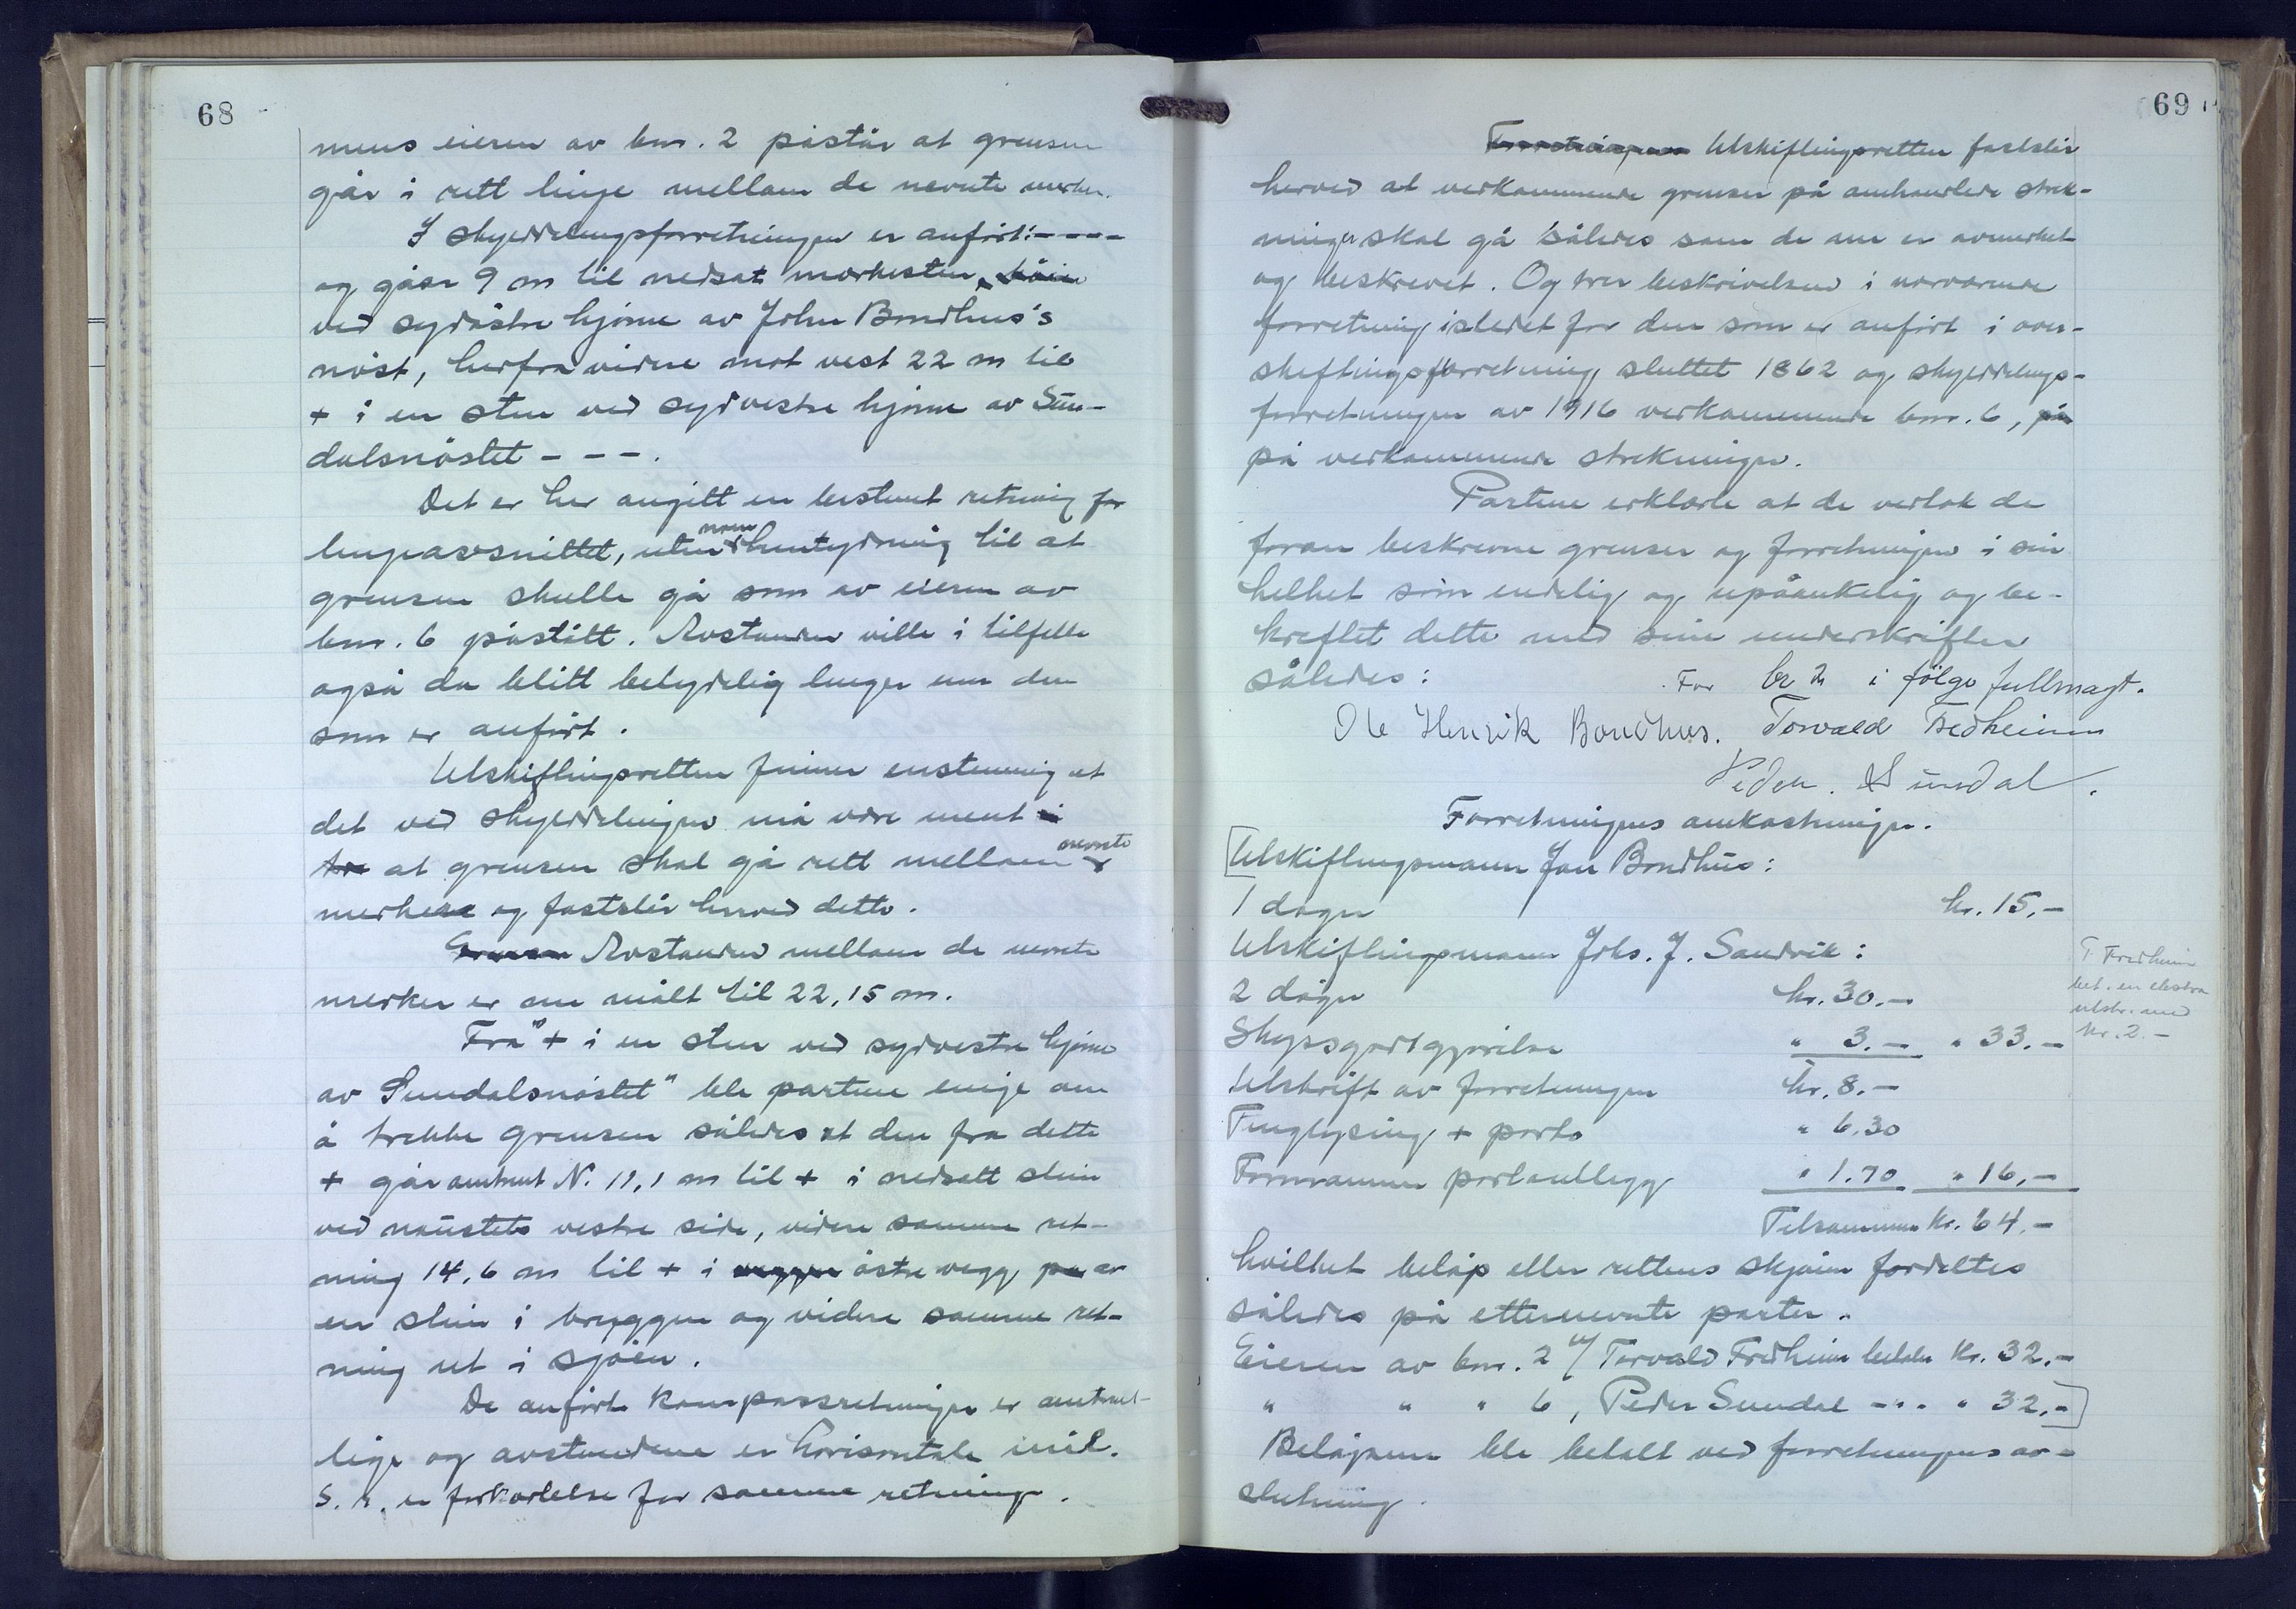 68
mens eieren av bnr. 2 påstår at grensen
går i rett linje mellem de nevnte merker.
I skylddelingsforretningen er anført: - - - -
og gåar 9 m til nedsat merkesten
ved sydöstre hjörne av John Bondhus's
nöst, herfra videre mot vest 22 m til
+ i en sten ved sydvestre hjörne av Sun-
dalsnöstet - - - .
Det er her angitt en bestemt retning for
lengeavsnittet, uten noen hentydning til at
grensen skulle gå som av eieren av
bnr. 6 påstått. Avstanden ville i tilfelle
også da blitt betydelig lenger enn den
som er anfört.
Utskiftingsretten finner enstemmig at
det ved skylddelingen må være ment
at grensen skal gå rett mellem nevnte
merker og fastslår herved dette.
Grensen Avstanden mellem de nevnte
merker er nu målt til 22,15 m.
Fra "+ i en sten ved sydvestre hjörne
av Sundalsnöstet" ble partene enige om
å trekke grensen således at den fra dette
+ går omtrent N. 11,1 m til + i nedsatt stein
ved naustets vestre side, videre samme ret-
ning 14,6 m til + i veggen östre vegg på av
en stein i bryggen og videre samme ret-
ning ut i sjöen.
De anförte kompassretninger er omtrent-
lige og avstandene er horisontale mål.
S. r. er forkortelse for samme retning.
69
Forretningen Utskiftingsretten fastslår
herved at vedkommende grenser på omhandlede strek-
ninger skal gå således som de nu er avmerket
og beskrevet. Og trer beskrivelsen i nærværende
forretning istedet for den som er anfört i over-
skiftingsforretning sluttet 1862 og skylddelings-
forretningen av 1916 vedkommende bnr. 6, på
på vedkommende strekninger.
Partene erklærte at de vedtok de
foran beskrevne grenser og forretningen i sin
helhet som endelig og upåankelig og be-
kreftet dette med sine underskrifter
således:
For br 2 i fölge fullmagt.
Ole Henrik Bondhus. Torvald Fredheim
Peder Sundal.
Forretningens omkostninger.
[Utskiftingsmann Jon Bondhus:
1 dager kr. 15.-
Utskiftingsmann Johs. J. Sandvik:
2 dager kr. 30.-
Skyssgodtgjörelse " 3.- " 33.-
T. Fredheim
bet. en ekstra
utskr. med
kr. 2.-
Utskrift av forretningen kr. 8.-
Tinglysing + porto " 6.30
Formannens portoutlegg " 1.70 " 16,-
Tilsammen kr. 64.-
hvilket belöp etter rettens skjönn fordeltes
således på etternevnte parter.
Eieren av bnr. 2 v/ Torvald Fredheim betaler kr. 32.-
" " " 6, Peder Sundal -"- " 32,-]
Belöpene ble betalt ved forretningens av-
slutning.